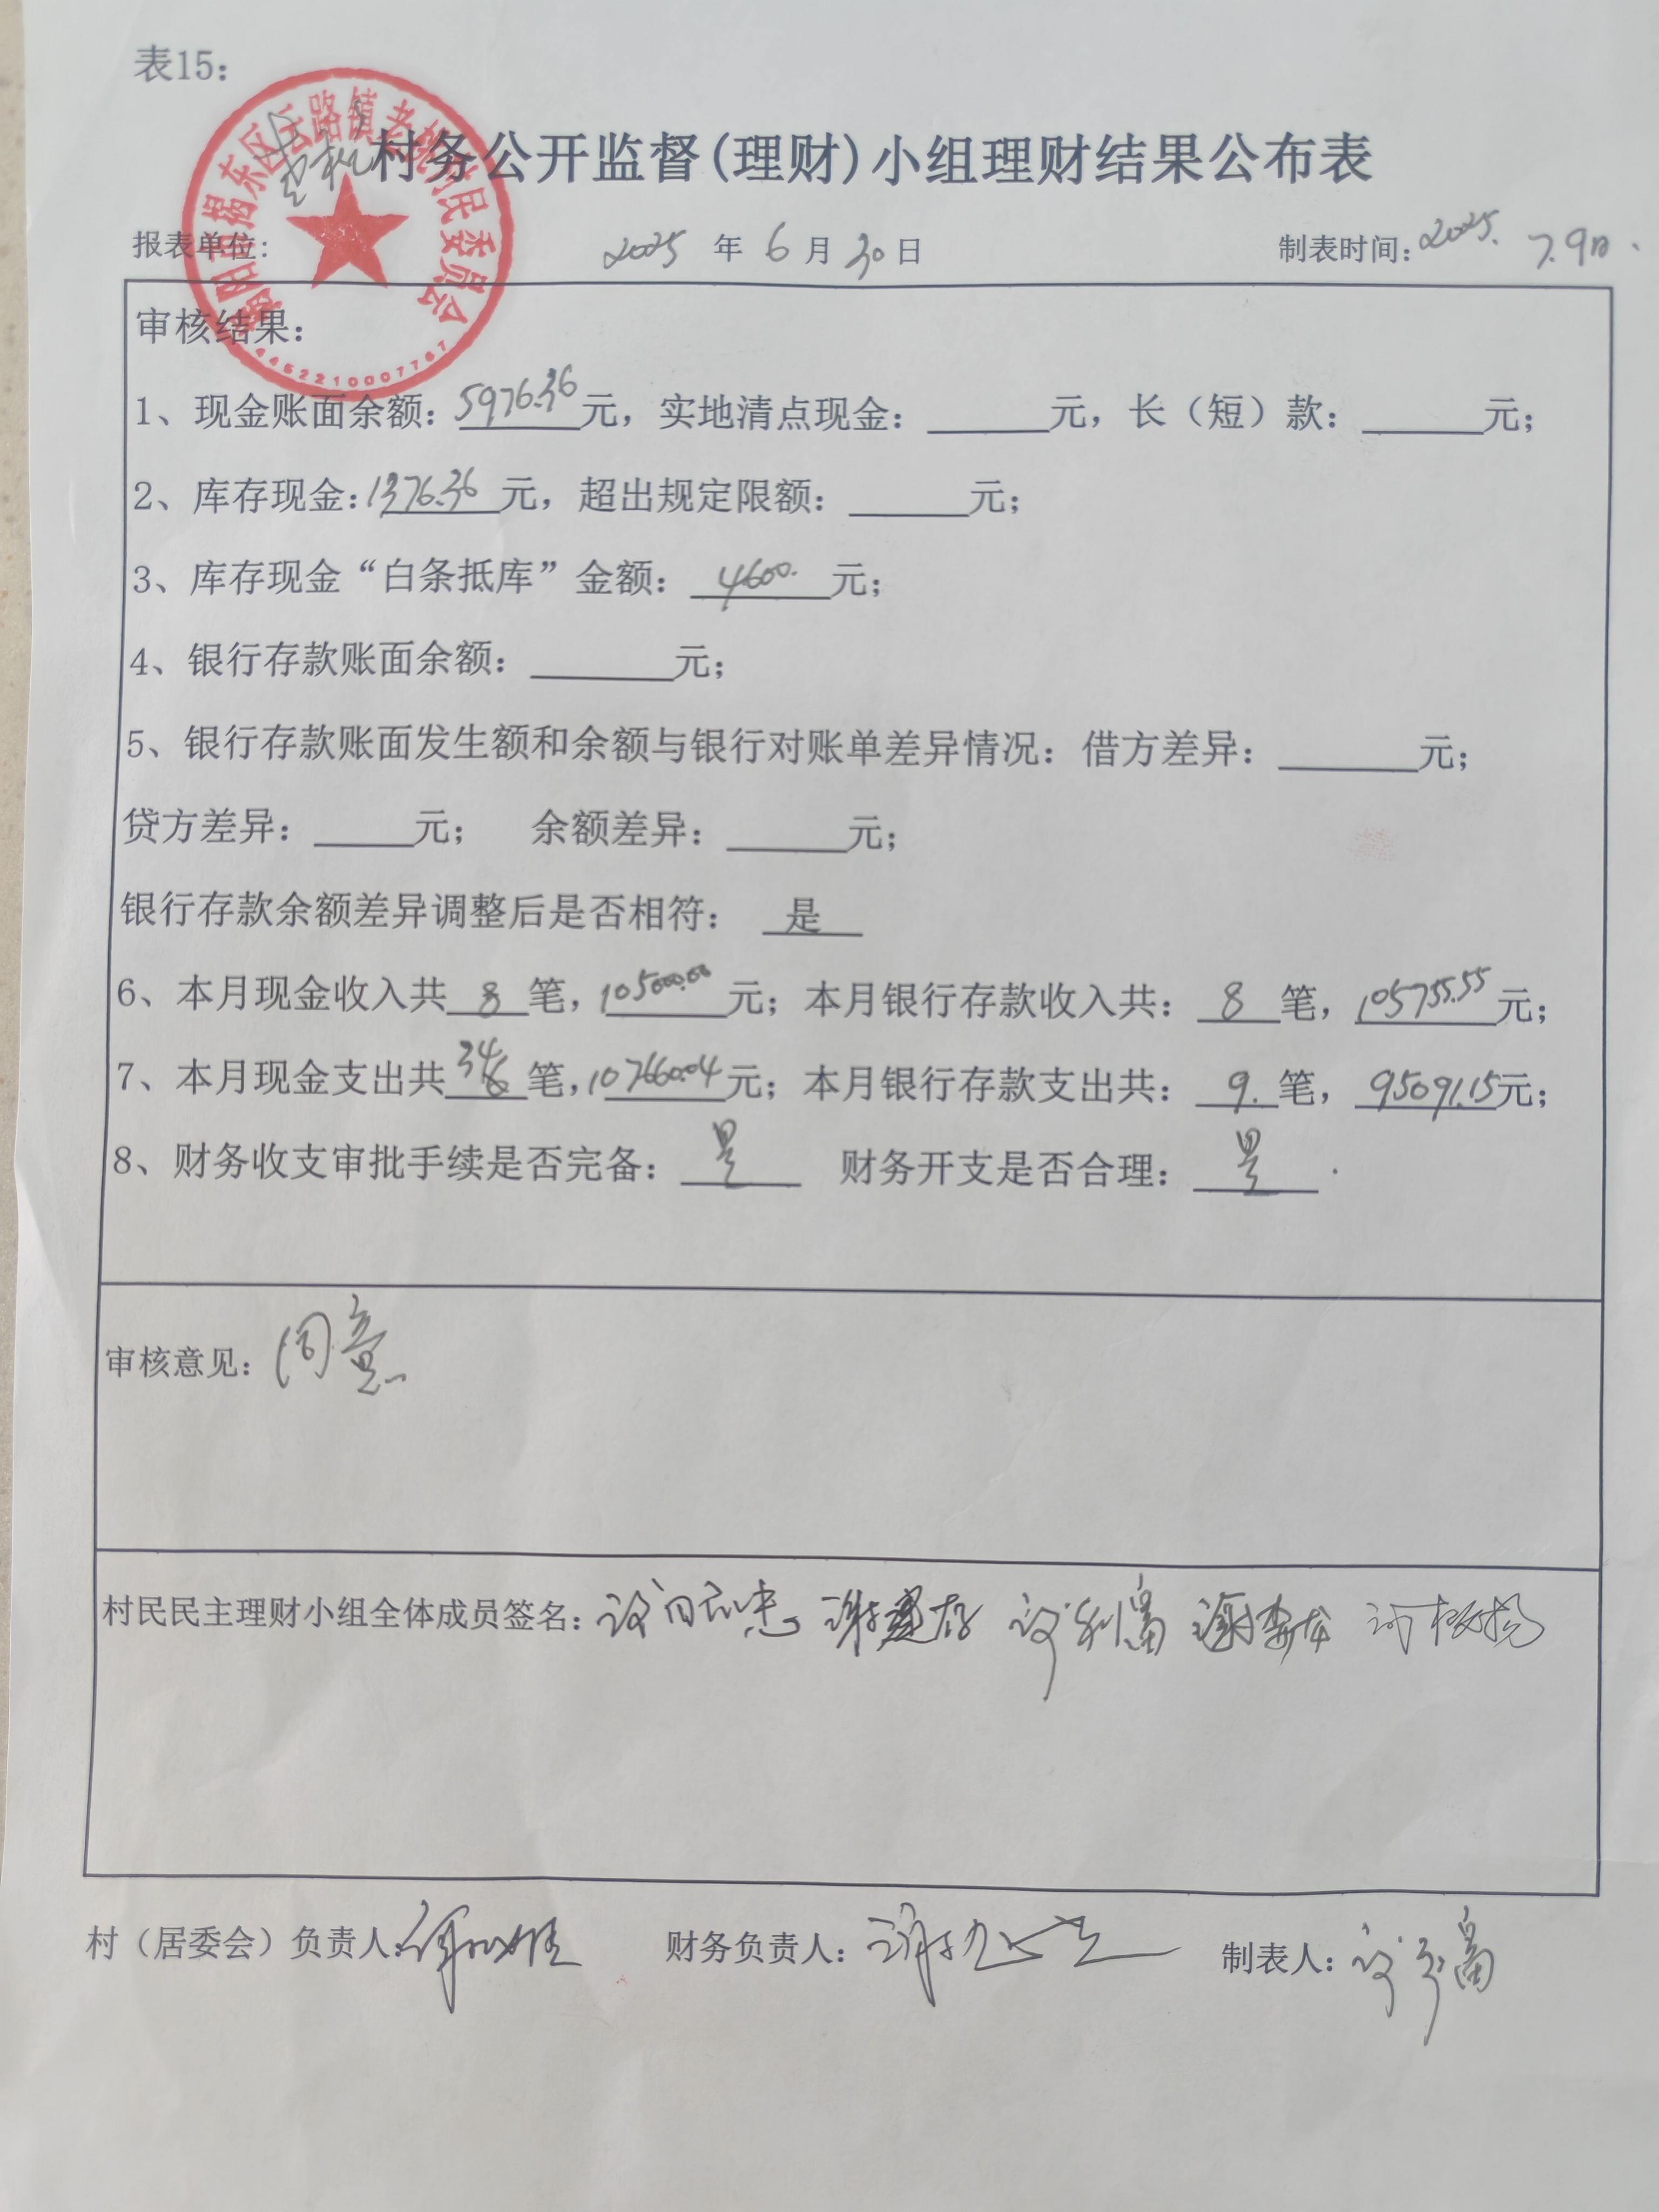 表15：
村务公开监督(理财)小组理财结果公布表
报表单位： 2025 年 6 月 30 日 制表时间：2025. 7.9日.
4452210007767
审核结果：
1、现金账面余额：5976.36元，实地清点现金：______元，长（短）款：______元；
2、库存现金：1376.36元，超出规定限额：______元；
3、库存现金“白条抵库”金额：4600.元；
4、银行存款账面余额：______元；
5、银行存款账面发生额和余额与银行对账单差异情况：借方差异：______元；
贷方差异：______元； 余额差异：______元；
银行存款余额差异调整后是否相符： 是
6、本月现金收入共 8 笔，105000.00元；本月银行存款收入共： 8 笔，105755.55元；
7、本月现金支出共 笔，107660.04元；本月银行存款支出共： 9. 笔，95091.15元；
8、财务收支审批手续是否完备： 是 财务开支是否合理： 是 .
审核意见：同意
村民民主理财小组全体成员签名：
村（居委会）负责人： 财务负责人： 制表人：